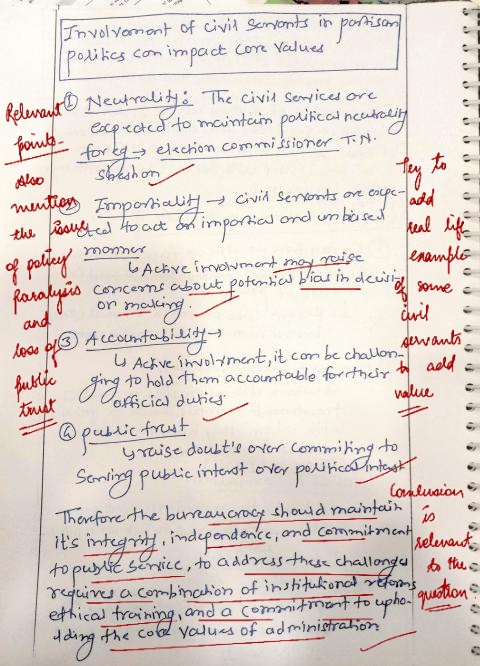 Involvement of civil servants in partisan
politics can impact core values
① Neutrality: The civil services are
expected to maintain political neutrality
for eg → election commissioner T.N.
Sheshon
② Impartiality → civil servants are expe-
cted to act on impartial and unbiased
manner
↳ Active involvment may raise
concerns about potential bias in decisi-
on making.
③ Accountability →
↳ Active involvment, it can be challan-
ging to hold them accountable for their
official duties
④ public trust
↳ raise doubt's over commiting to
Serving public interest over political interest
Therefore the bureaucracy should maintain
it's integrity, independence, and commitment
to public service, to address these challenges
requires a combination of institutional reforms
ethical training, and a commitment to upho-
lding the core values of administration
Relevant
points-
Also
mention
the issue
of policy
Paralysis
and
loss of
public
trust
Try to
add
real life
example
of some
civil
servants
to add
value
Conclusion
is
relevant
to the
question.